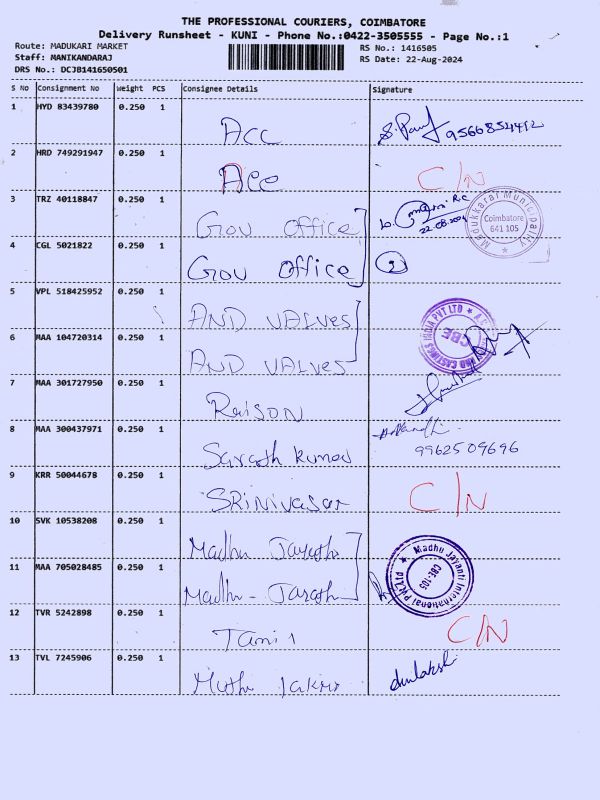 THE PROFESSIONAL COURIERS, COIMBATORE
Delivery Runsheet - KUNI - Phone No.:0422-3505555 - Page No.:1
Route: MADUKARI MARKET
RS No.: 1416505
Staff: MANIKANDARAJ
RS Date: 22-Aug-2024
DRS No.: DCJB141650501
S No Consignment No Weight PCS Consignee Details Signature
1 HYD 83439780 0.250 1 ACC
2 HRD 749291947 0.250 1 ACC C/N
3 TRZ 40118847 0.250 1 Gov office 22.08.2024
Madukkarai Municipality
Coimbatore
641 105
4 CGL 5021822 0.250 1 Gov office 2
5 VPL 518425952 0.250 1 AND VALVES
6 MAA 104720314 0.250 1 AND VALVES
AND CASTINGS INDIA PVT LTD
CBE
7 MAA 301727950 0.250 1 Raison
8 MAA 300437971 0.250 1 Sarath kumar
9962509696
9 KRR 50044678 0.250 1 SRINIVASAN C/N
10 SVK 10538208 0.250 1 Madhu
11 MAA 705028485 0.250 1 Madhu -
Madhu Jayanti International Pvt.Ltd
CBE-105
12 TVR 5242898 0.250 1 C/N
13 TVL 7245906 0.250 1